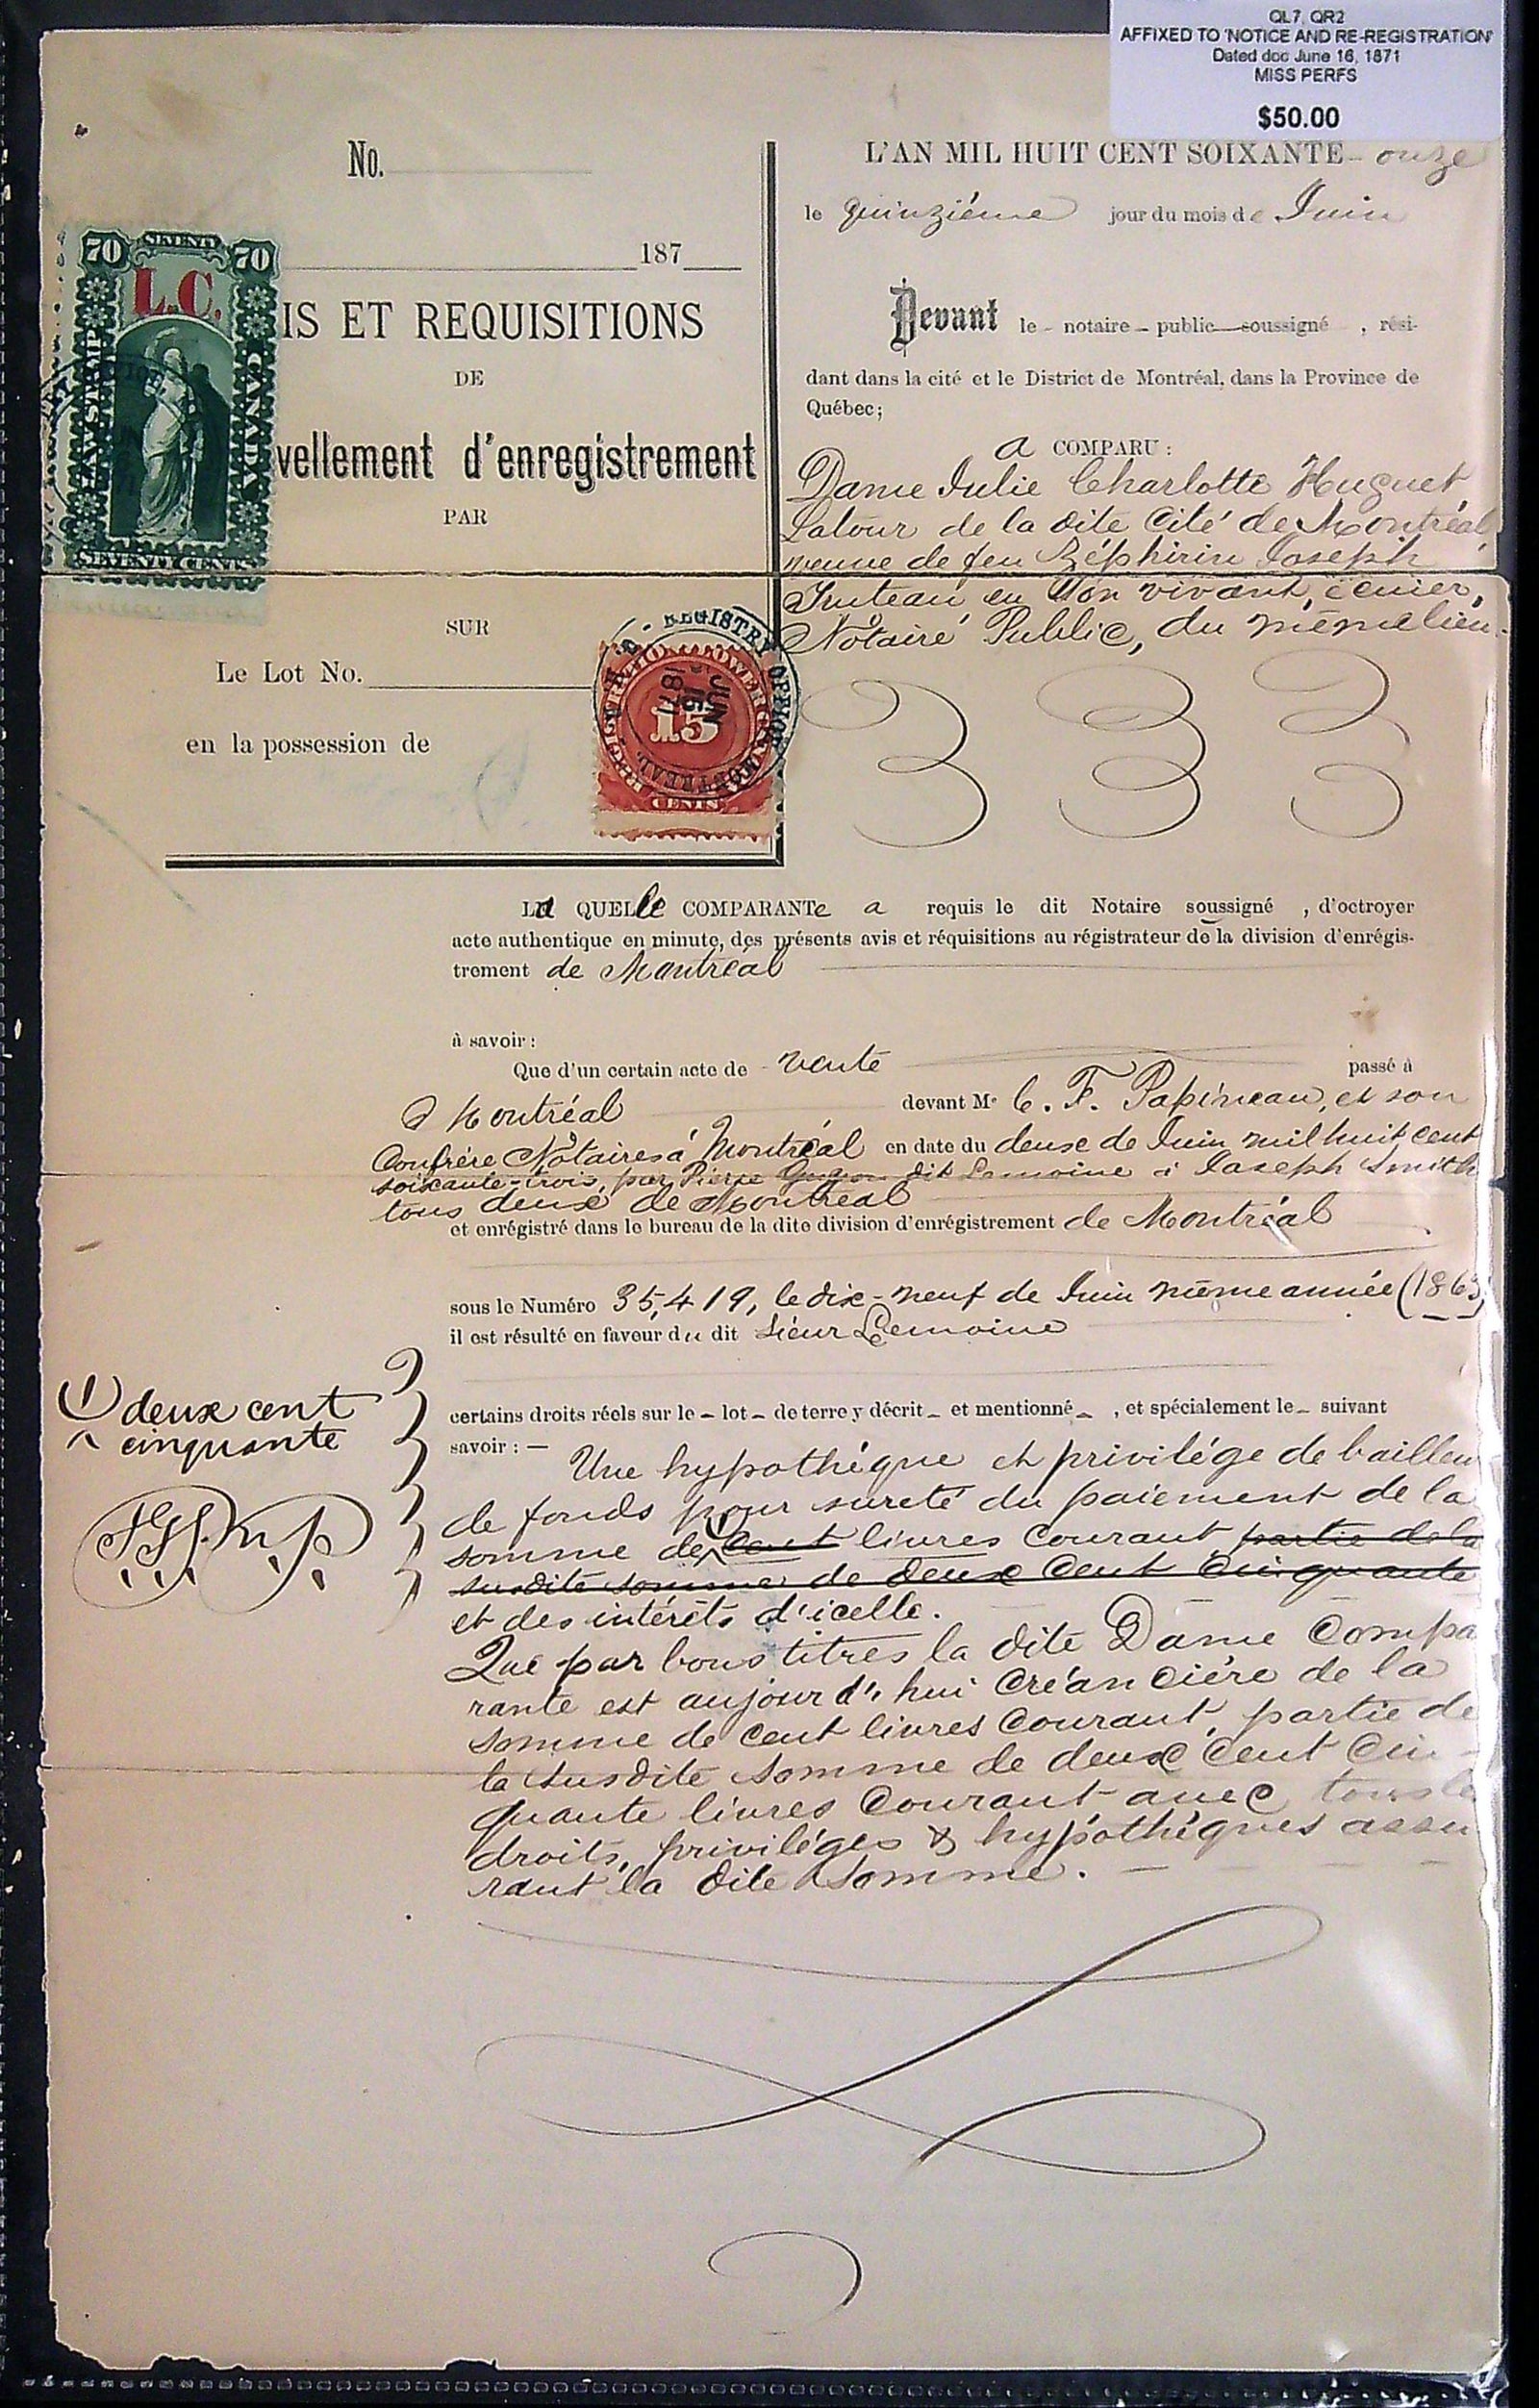 QL7, QR2
AFFIXED TO 'NOTICE AND RE-REGISTRATION'
Dated doc June 16, 1871
MISS PERFS
$50.00
No.
187
70 SEVENTY 70
L.C.
LAW STAMP
CANADA
SEVENTY CENTS
IS ET REQUISITIONS
DE
vellement d'enregistrement
PAR
SUR
Le Lot No.
en la possession de
REGISTRY OFFICE
MONTREAL
JUN
16
1871
15
CENTS
L'AN MIL HUIT CENT SOIXANTE-onze
le quinziéme jour du mois de Juin
Devant le - notaire - public soussigné , rési-
dant dans la cité et le District de Montréal, dans la Province de
Québec;
a COMPARU :
Dame Julie Charlotte Huguet
Latour de la dite Cité de Montréal,
veuve de feu Zéphirin Joseph
Truteau en son vivant, écuier,
Notaire Public, du même lieu.
La QUELle COMPARANTe a requis le dit Notaire soussigné , d'octroyer
acte authentique en minute, des présents avis et réquisitions au régistrateur de la division d'enrégis-
trement de Montréal
à savoir :
Que d'un certain acte de - vente passé à
Montréal devant Me C. F. Papineau, et son
Confrère Notaires à Montréal en date du deux de Juin mil huit cent
soixante-trois, par Pierre dit Lemoine à Joseph Smith
tous deux de Montréal
et enrégistré dans le bureau de la dite division d'enrégistrement de Montréal
sous le Numéro 35,419, le dix-neuf de Juin même année (1863)
il est résulté en faveur du dit Sieur Lemoine
certains droits réels sur le - lot - de terre y décrit - et mentionné - , et spécialement le - suivant
savoir : -
(1) deux cent
cinquante
Une hypothéque et privilége de bailleur
de fonds pour sureté du paiement de la
somme de (1) cent livres courant, partie de la
susdite somme de deux cent cinquante
et des intérêts d'icelle.
Que par bons titres la dite Dame Compa
rante est aujourd'hui Créancière de la
somme de cent livres Courant, partie de
la susdite somme de deux cent Cin-
quante livres Courant avec tous le
droits, priviléges & hypothéques assu
rant la dite somme. -